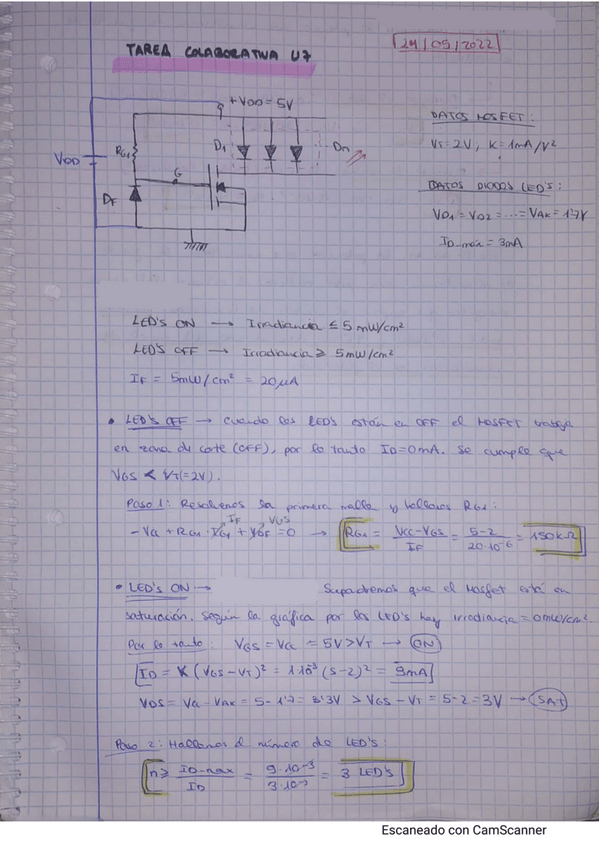 TAREA COLABORATIVA U7
24/05/2022
+VDD = 5V
RG1
D1
Dn
VDD
G
DF
DATOS MOSFET:
VT = 2V, K = 1mA/V²
DATOS DIODOS LED'S:
VD1 = VD2 = ... = VAK = 1'7V
ID_max = 3mA
LED'S ON → Irradiancia ≤ 5 mW/cm²
LED'S OFF → Irradiancia ≥ 5mW/cm²
IF = 5mW/cm² = 20µA
• LED'S OFF → cuando los LED's están en OFF el MOSFET trabaja
en zona de corte (OFF), por lo tanto ID=0mA. Se cumple que
VGS < VT(=2V).
Paso 1: Resolvemos la primera malla y hallamos RG1:
IF VGS
-VCC + RG1 · IG1 + VDF = 0 → RG1 = VCC-VGS / IF = 5-2 / 20·10⁻⁶ = 150kΩ
• LED'S ON → Supondremos que el Mosfet está en
saturación. Según la gráfica por los LED's hay irradiancia = 0mW/cm².
Por lo tanto: VGS = VCC = 5V > VT → ON
ID = K (VGS - VT)² = 1·10⁻³ (5-2)² = 9mA
VDS = VCC - VAK = 5 - 1'7 = 3'3V > VGS - VT = 5-2 = 3V → SAT
Paso 2: Hallamos el número de LED's:
n ≥ ID_max / ID = 9·10⁻³ / 3·10⁻³ = 3 LED's
Escaneado con CamScanner